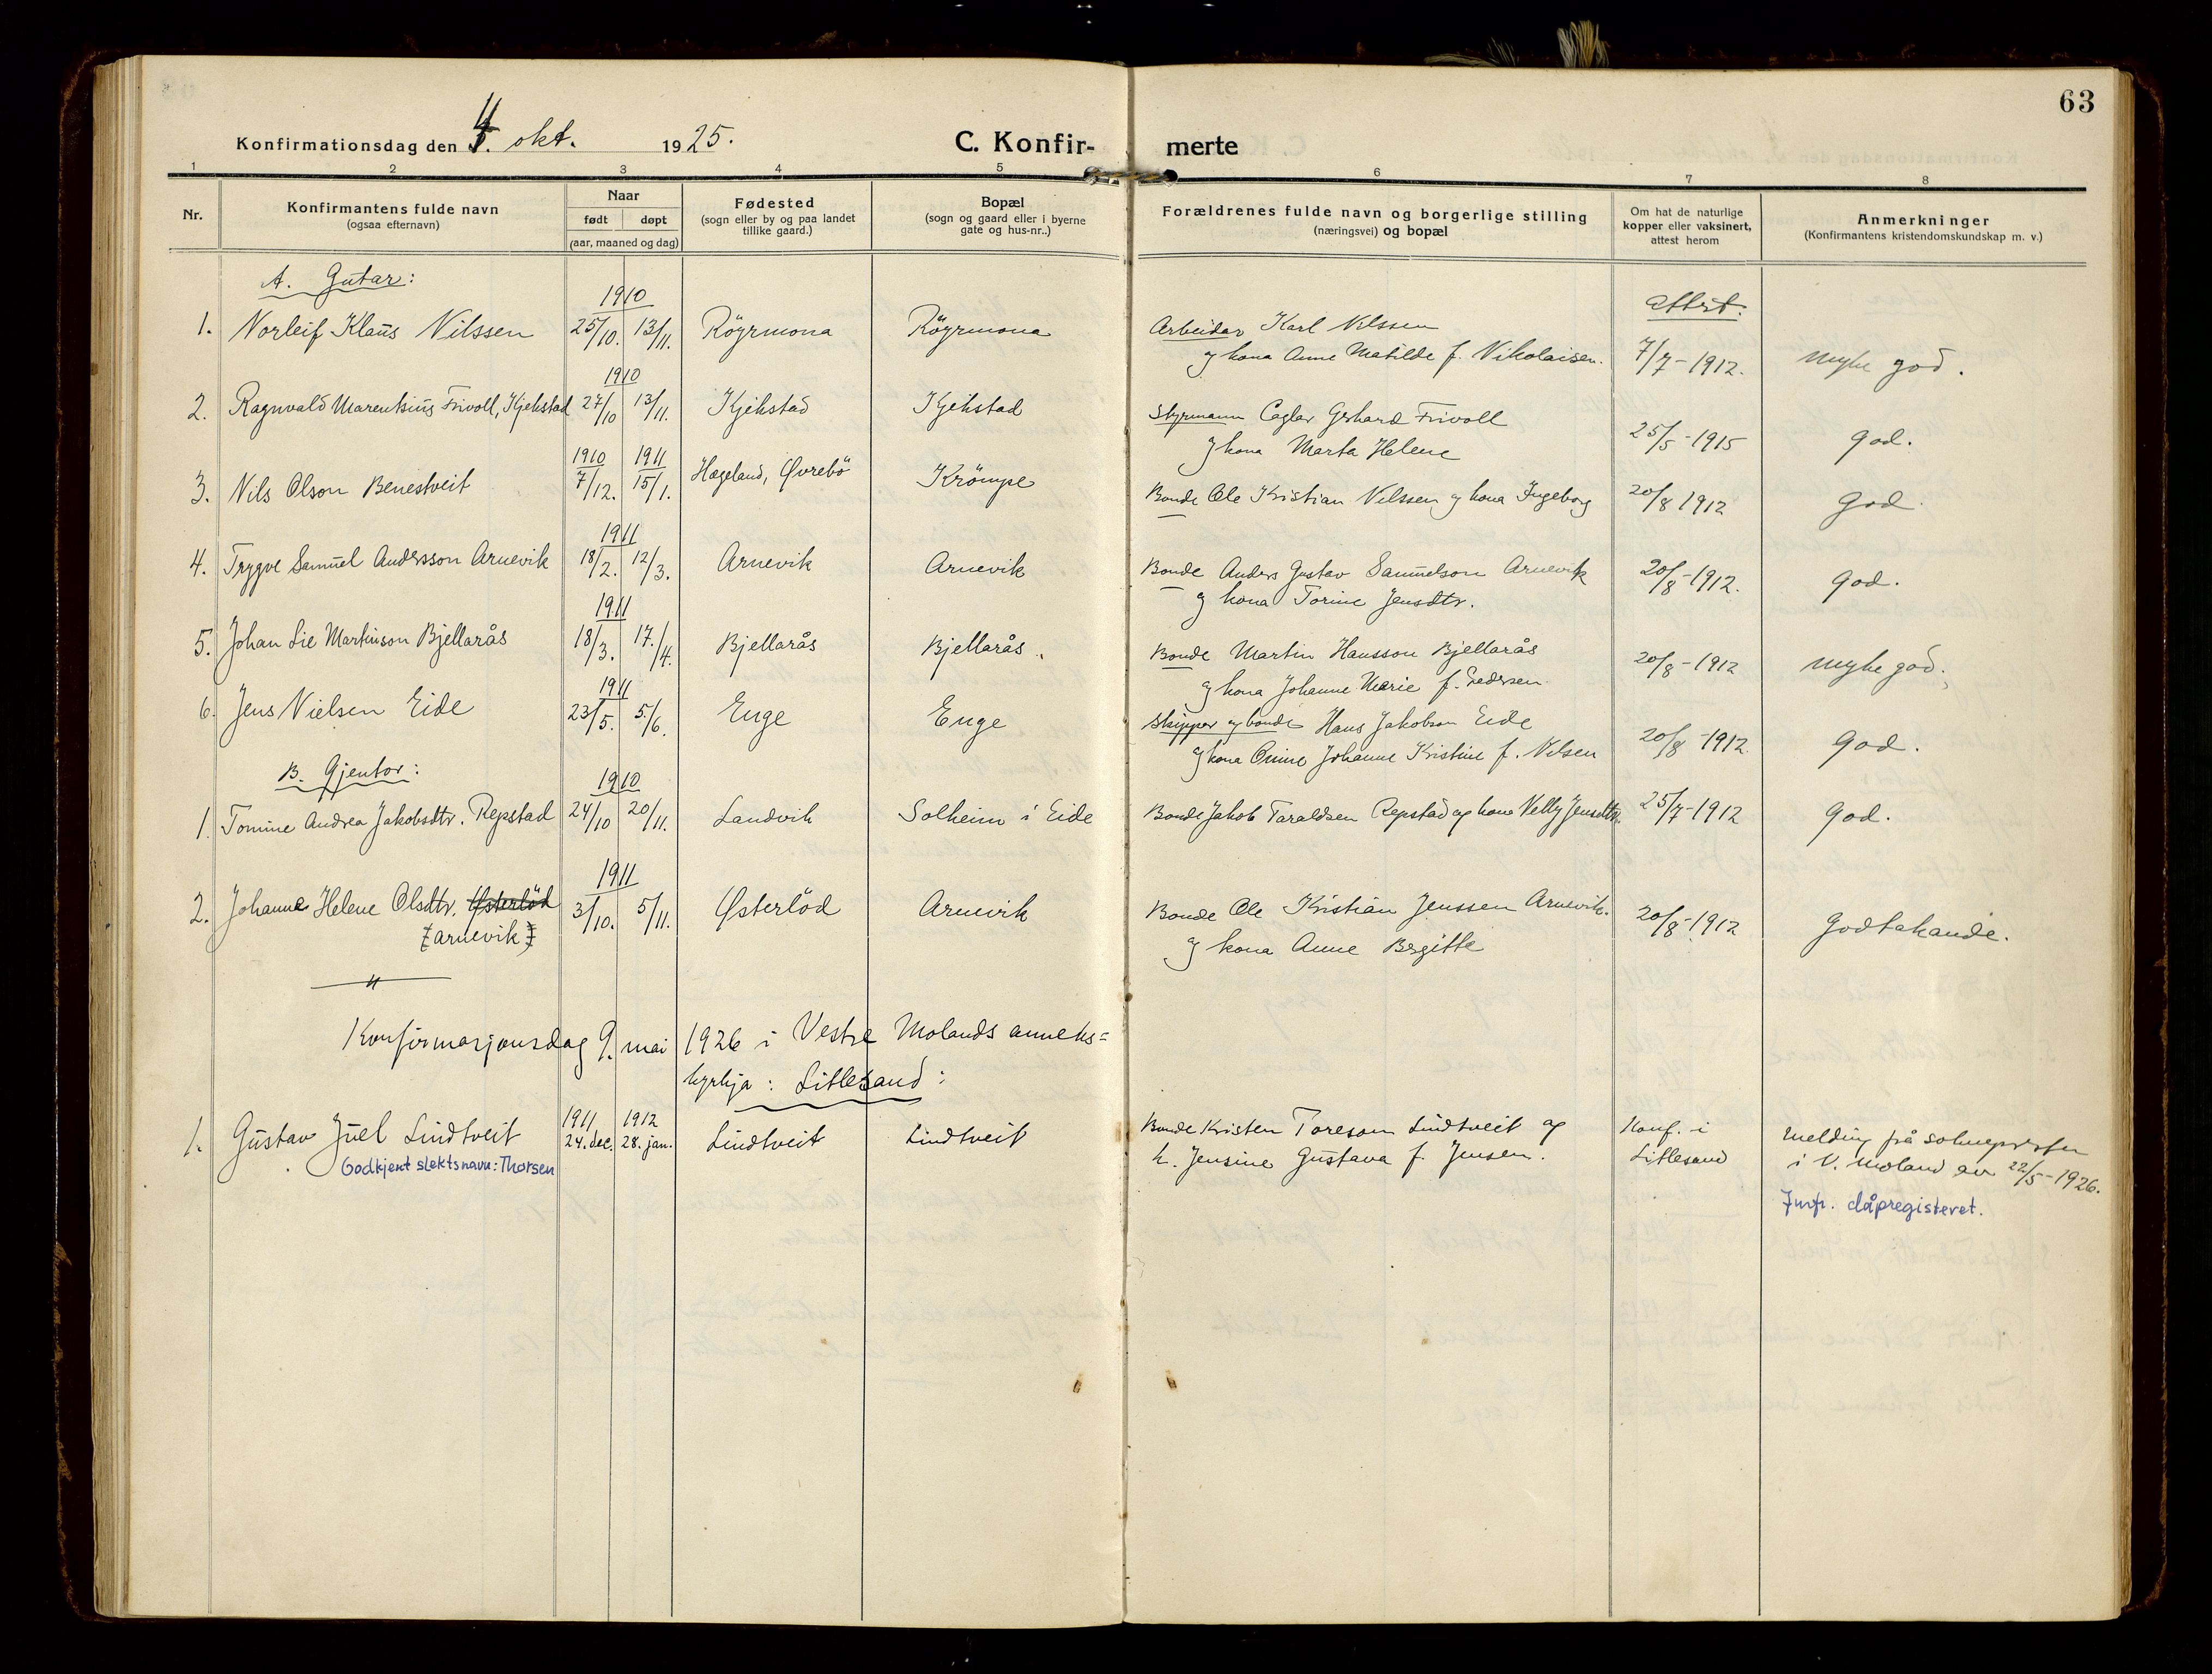 63
Konfirmationsdag den 4. okt. 1925.
C. Konfir- merte
1 2 3 4 5 6 7 8
Nr.
Konfirmantens fulde navn
(ogsaa efternavn)
Naar
født døpt
(aar, maaned og dag)
Fødested
(sogn eller by og paa landet
tillike gaard.)
Bopæl
(sogn og gaard eller i byerne
gate og hus-nr..)
Forældrenes fulde navn og borgerlige stilling
(næringsvei) og bopæl
Om hat de naturlige
kopper eller vaksinert,
attest herom
Anmerkninger
(Konfirmantens kristendomskundskap m. v.)
A. Gutar:
1910 attest:
1. Norleif Klaus Nilssen 25/10. 13/11. Röyrmona Röyrmona Arbeidar Karl Nilssen
og kona Anne Matilde f. Nikolaisen. 7/7-1912. myke god.
1910
2. Ragnvald Marentsius Frivoll, Kjekstad 27/10 13/11. Kjekstad Kjekstad Styrmann Caglar Gerhard Frivoll
og kona Marta Helene 25/5-1915 god.
1910 1911
3. Nils Olson Benestveit 7/12. 15/1. Hægeland, Øvrebö Krömpe Bonde Ole Kristian Nilssen og kona Ingeborg 20/8 1912 god.
1911
4. Trygve Samuel Andersson Arnevik 18/2. 12/3. Arnevik Arnevik Bonde Anders Gustav Samuelson Arnevik
og kona Torine Jensdtr. 20/8-1912. god.
1911
5. Johan Lie Martinson Bjellarås 18/3. 17./4. Bjellarås Bjellarås. Bonde Martin Hansson Bjellarås
og kona Johanne Marie f. Pedersen 20/8-1912 myke god.
1911
6. Jens Nielsen Eide 23/5. 5./6. Enge Enge Skipper og bonde Hans Jakobson Eide
og kona Onine Johanne Kristine f. Nilsen 20/8-1912. god.
B. Gjentor:
1910
1. Tomine Andrea Jakobsdtr. Repstad 24/10 20/11. Landvik Solheim i Eide Bonde Jakob Taraldsen Repstad og kona Nelly Jensdtr. 25/7-1912 god.
1911
2. Johanne Helene Olsdtr. Østerlöd
(Arnevik) 3/10. 5/11. Østerlöd Arnevik Bonde Ole Kristian Jenssen Arnevik.
og kona Anne Bergitte 20/8-1912 godtakande.
Konfirmasjonsdag 9. mai 1926 i Vestre Molands anneks=
kyrkja: Lillesand:
1911 1912
1. Gustav Juel Lindtveit 24. dec. 28. jan. Lindtveit Lindtveit Bonde Kristen Toreson Lindtveit og
k. Jensine Gustava f. Jensen. Konf. i
Lillesand melding frå soknepresten
i V. Moland av 22/5-1926.
Godkjent slektsnavn: Thorsen
Jmfr. dåpregisteret.